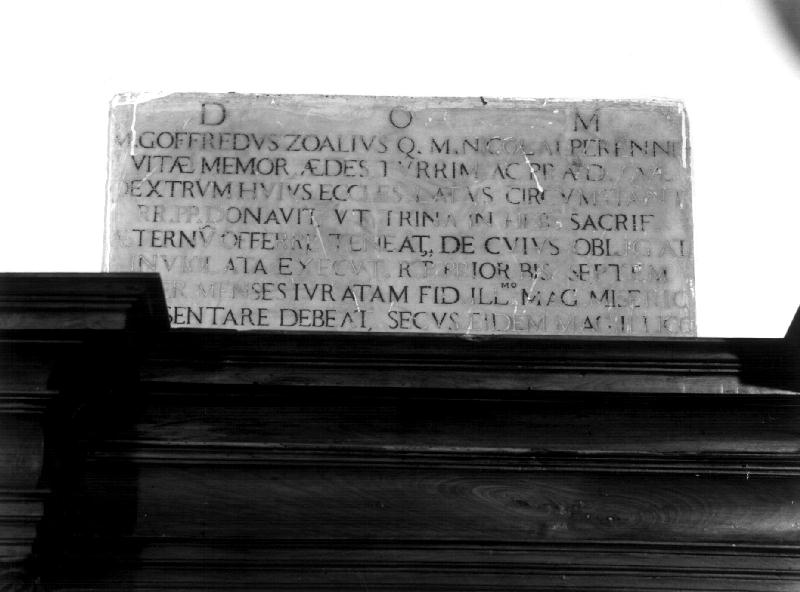 D O M
M. GOFFREDVS ZOALIVS Q. M. NICOLAI PERENNE
VITÆ MEMOR ÆDES TVRRIM AC
DEXTRVM HVIVS ECCLES LATVS
RR. PP. DONAVIT, VT TRINA IN HEBD SACRIF
ÆTERNŪ OFFERRE TENEAT, DE CVIVS OBLIGAT
INVIOLATA EXECVT. R. P. PRIOR BIS SEPTEM
MENSES IVRATAM FID. ILL.MO MAG. MISERIC
SENTARE DEBEAT, SECVS EIDEM MAG. ILLICO